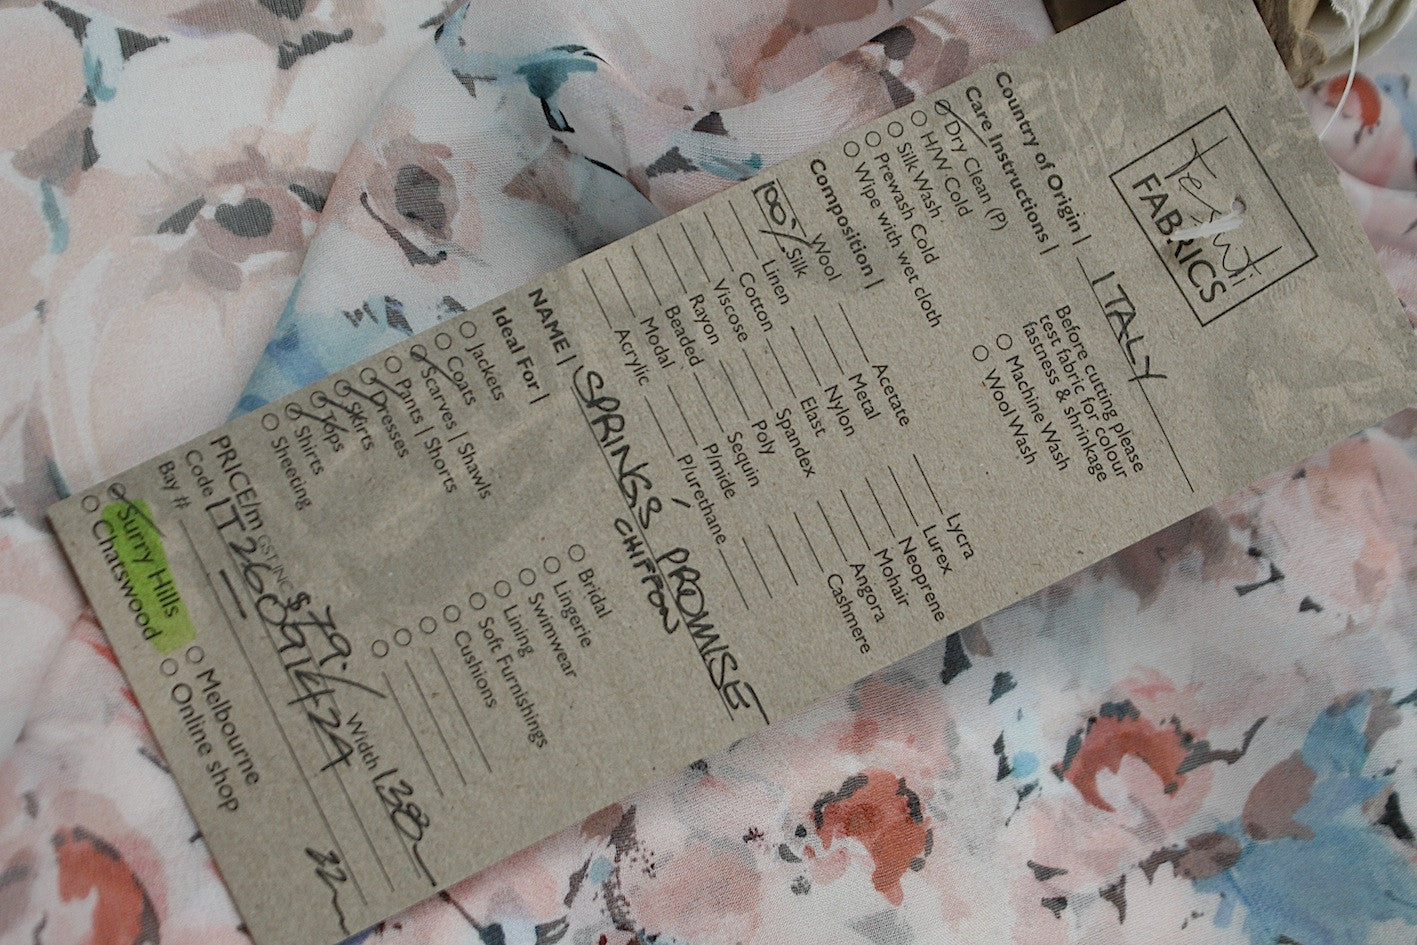 Tessuti
FABRICS
Country of Origin | ITALY
Care Instructions |
Dry Clean (P)
H/W Cold
Silk Wash
Prewash Cold
Wipe with wet cloth
Before cutting please
test fabric for colour
fastness & shrinkage
Machine Wash
Wool Wash
Composition |
Wool
100% Silk
Linen
Cotton
Viscose
Rayon
Beaded
Modal
Acrylic
Acetate
Metal
Nylon
Elast
Spandex
Poly
Sequin
P/mide
P/urethane
Lycra
Lurex
Neoprene
Mohair
Angora
Cashmere
NAME | SPRING'S PROMISE
CHIFFON
Ideal For |
Jackets
Coats
Scarves | Shawls
Pants | Shorts
Dresses
Skirts
Tops
Shirts
Sheeting
Bridal
Lingerie
Swimwear
Lining
Soft Furnishings
Cushions
PRICE/m GST INC $79./ Width 138
Code IT
Bay #
Surry Hills
Chatswood
Melbourne
Online shop